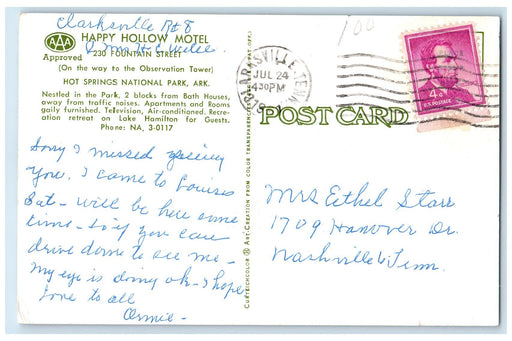 Clarksville Rt 8
AAA
HAPPY HOLLOW MOTEL
% Mrs H C Welee
230 FOUNTAIN STREET
Approved
(On the way to the Observation Tower)
HOT SPRINGS NATIONAL PARK, ARK.
Nestled in the Park, 2 blocks from Bath Houses,
away from traffic noises. Apartments and Rooms
gaily furnished. Television, Air-conditioned. Recre-
ation retreat on Lake Hamilton for Guests.
Phone: NA, 3-0117
Sorry I missed seeing
You. I came to Louises
Sat - will be here some
time - so if you can
drive down to see me -
My eye is doing ok - I hope
Love to all
Ormie -
CURTEICHCOLOR ® ART-CREATION FROM COLOR TRANSPARENCY
100
CLARKSVILLE, TENN.
JUL 24
430PM
4¢
U.S. POSTAGE
POST CARD
Mrs Ethel Starr
1709 Hanover Dr.
Nashville 6 Tenn.